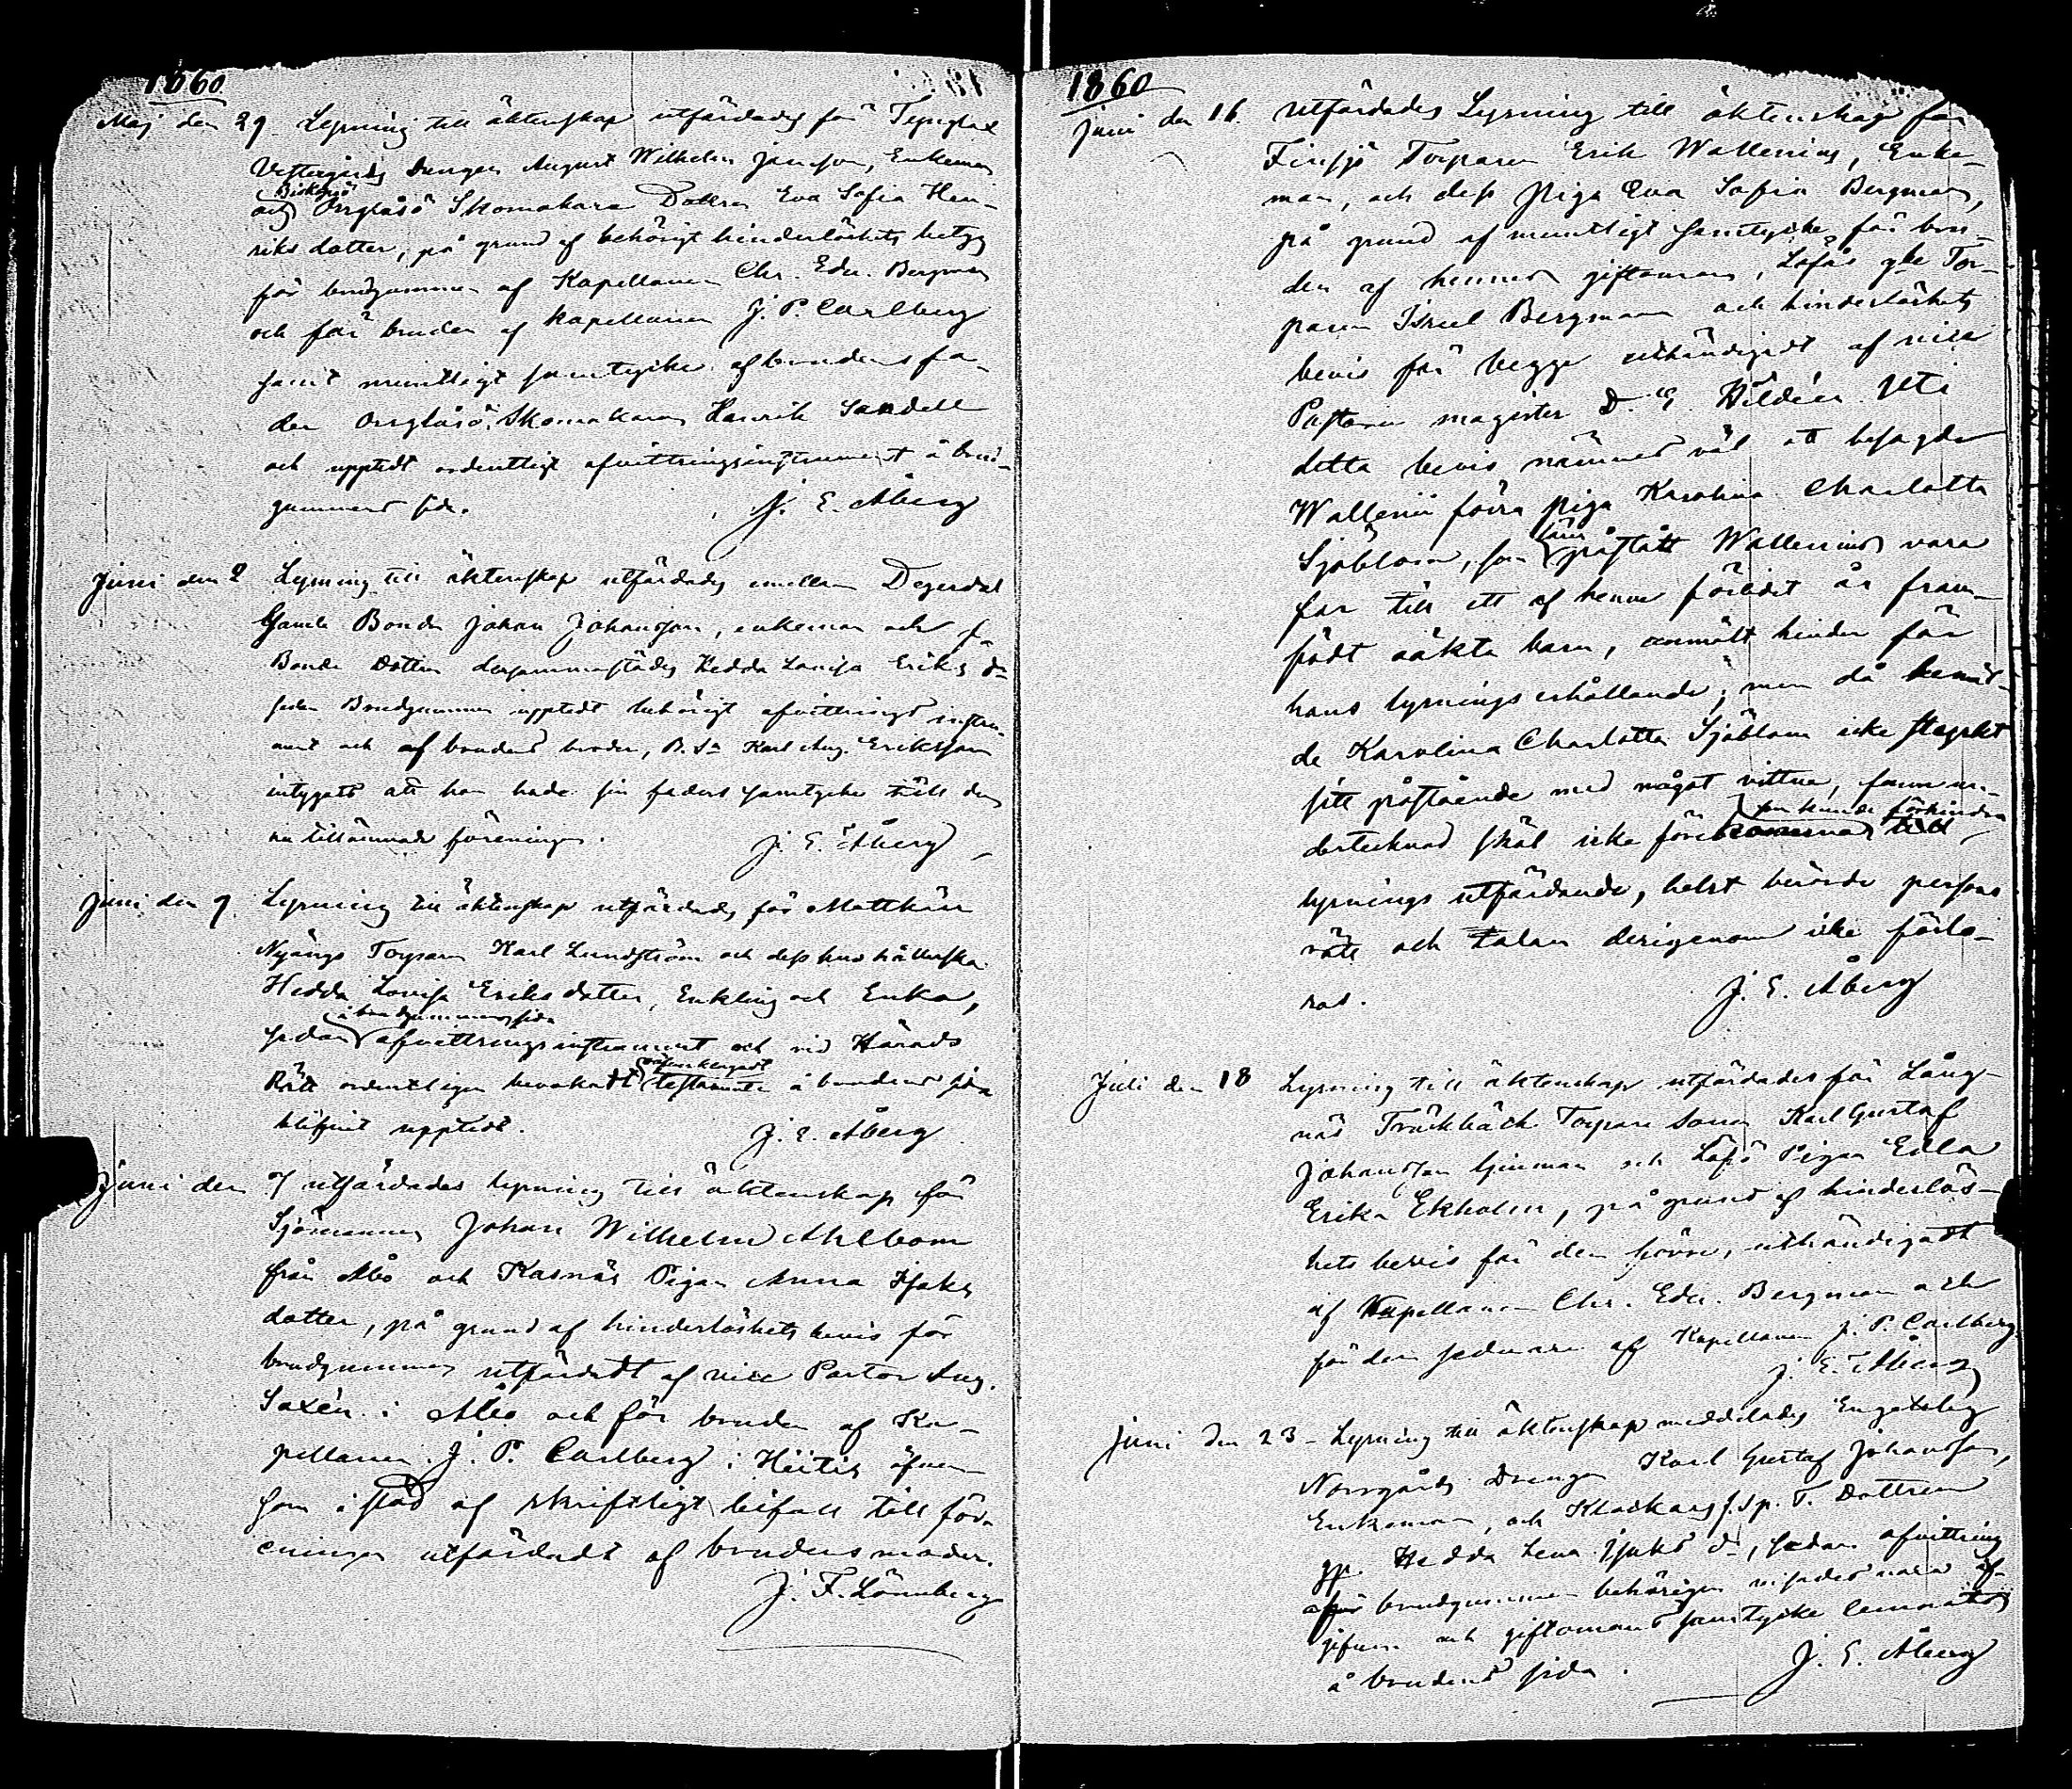 1860
Maj den 29 Lysning till äktenskap utfärdades för
Vestergårds Drengen August Wilhelm Jansson, Enkeman
Biskopsö
och Örglåsö Skomakare Dottren Eva Sofia Hen-
riks dotter, på grund af behörigt hinderlöshets betyg
för brudgummen af Kapellanen Chr. Edu. Bergman
och för bruden af Kapellanen J. P. Carlberg
samt muntligt samtycke af brudens fa-
der Skomakaren Henrik Sandell
och uppvist ordentligt afvittringsinstrument å brud-
gummens sida.
J. E. Åberg
Juni den 2 Lysning till äktenskap utfärdades emellan Degerdal
Gamla Bonde Johan Johansson, enkeman och
Bonde Dottren dersammastädes Hedda Lovisa Eriks dr
sedan Brudgummen upptedt behörigt afvittrings instru-
ment och af brudens broder, B. Sn Karl Aug. Eriksson
intygats att hon hade sin faders samtycke till den
nu tillämnade föreningen.
J. E. Åberg
Juni den 7 Lysning till äktenskap utfärdades för Mattkärr
Nyängs Torparen Karl Lundström och dess hushållerska
Hedda Lovisa Eriksdotter, Enkling och Enka,
å brudgummens sida
sedan afvittringsinstrument och vid Härads
Rätt ordentligen bevakadt testamente å brudens sida
blifvit upptedt.
J. E. Åberg
Juni den 7 utfärdades lysning till äktenskap för
Sjömannen Johan Wilhelm Ahlbom
från Åbo och Kasnäs Pigan Anna Isaks
dotter, på grund af hinderlöshets bevis för
brudgummen utfärdadt af vice Pastor Aug.
Saxén i Åbo och för bruden af Ka-
pellanen J. P. Carlberg i Hiitis äfven-
som i stöd af skriftligt bifall till för-
eningen utfärdadt af brudens moder.
J. F. Lönnberg
1860
Juni den 16. Utfärdades Lysning till äktenskap för
Finsjö Torparen Erik Wallenius, Enke-
man, och dess Piga Eva Sofia Bergman,
på grund af muntligt samtycke för bru-
den af hennes giftoman, Löfås gle Tor-
paren Israel Bergman och hinderlöshets
bevis för begge uthändigadt af vice
Pastorn magister D. E. Hildén. Uti
detta bevis nämnes väl att besagde
Wallenii förra piga Karolina Charlotta
Sjöblom, som påstått Wallenius vara
far till ett af henne förlidet år fram-
födt oäkta barn, anmält hinder för
hans lysnings erhållande; men då bemäl-
de Karolina Charlotta Sjöblom icke styrkt
sitt påstående med något vittne, fann un-
som kunde förhindra
dertecknad skäl icke förekomma
lysnings utfärdande, helst berörde persons
rätt och talan derigenom icke förlo-
rad.
J. E. Åberg
Juli den 18 Lysning till äktenskap utfärdades för Lång-
näs Träskbäck Torpare Sonen Karl Gustaf
Johansson Ginman och Löfö Pigan Edla
Erika Ekholm, på grund af hinderlös-
hets bevis för den förre, uthändigadt
af Kapellanen Chr. Edu. Bergman och
för den sednare af Kapellanen J. P. Carlberg.
J. E. Åberg
Juni den 23 - Lysning till äktenskap meddelades Engelsby
Norrgårds Drengen Karl Gustaf Johansson,
Enkeman, och Klackars f. Sp. T. Dottren
gp. Hedda Lena Isaks dr, sedan afvittring
för brudgummen behörigen visades vara af-
gifven och giftomans samtycke
å brudens sida.
J. E. Åberg